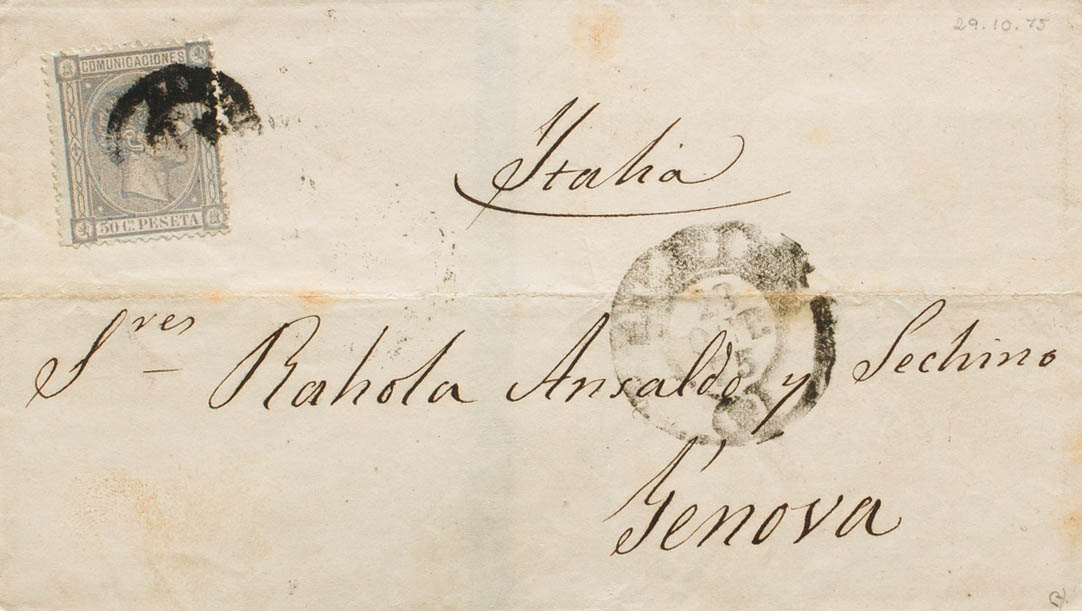 29.10.75
COMUNICACIONES
50 C. PESETA
Italia
Sres Rahola Ansaldo y Sechino
Génova